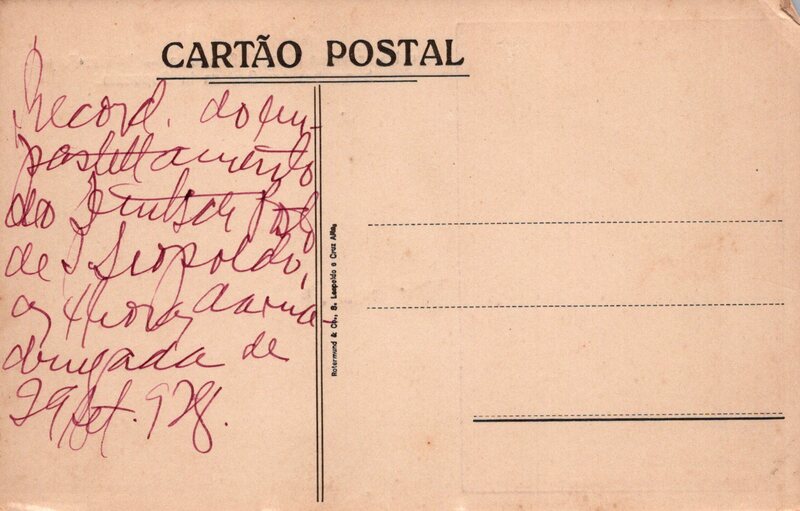 CARTÃO POSTAL
Record. do em-
pastellamento
do Deutsch Post
de S. Leopoldo,
as 4 horas da ma-
drugada de
29 Set. 928.
Rotermund & Co., S. Leopoldo e Cruz Alta